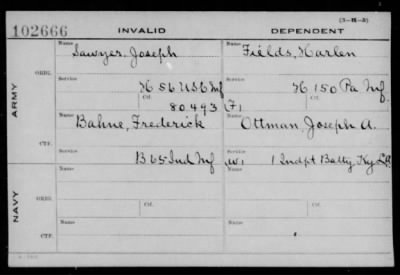 (3-H-3)
102666 INVALID DEPENDENT
Name Name
Sawyer, Joseph Fields, Harlen
ORIG.
Service Service
H 56 USC Inf H 150 Pa Inf
Ctf. Ctf.
80493 F1
ARMY
Name Name
Bahne, Frederick Ottman, Joseph A.
CTF.
Service Service
B 65 Ind Inf W. 1 Indpt Batty Ky L.A.
Name Name
ORIG.
Service Ctf. Service Ctf.
NAVY
Name Name
CTF.